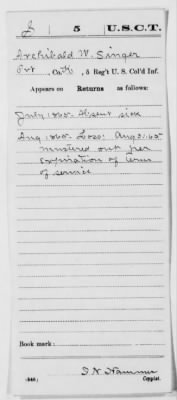 S | 5 | U.S.C.T.
Archibald W. Singer
Pvt, Co. K, 5 Reg't U. S. Col'd Inf.
Appears on Returns as follows:
July 1865. Absent sick
Aug 1865. Loss: Aug 31/65
Mustered out per
expiration of term
of service
Book mark:
(546) Copyist.